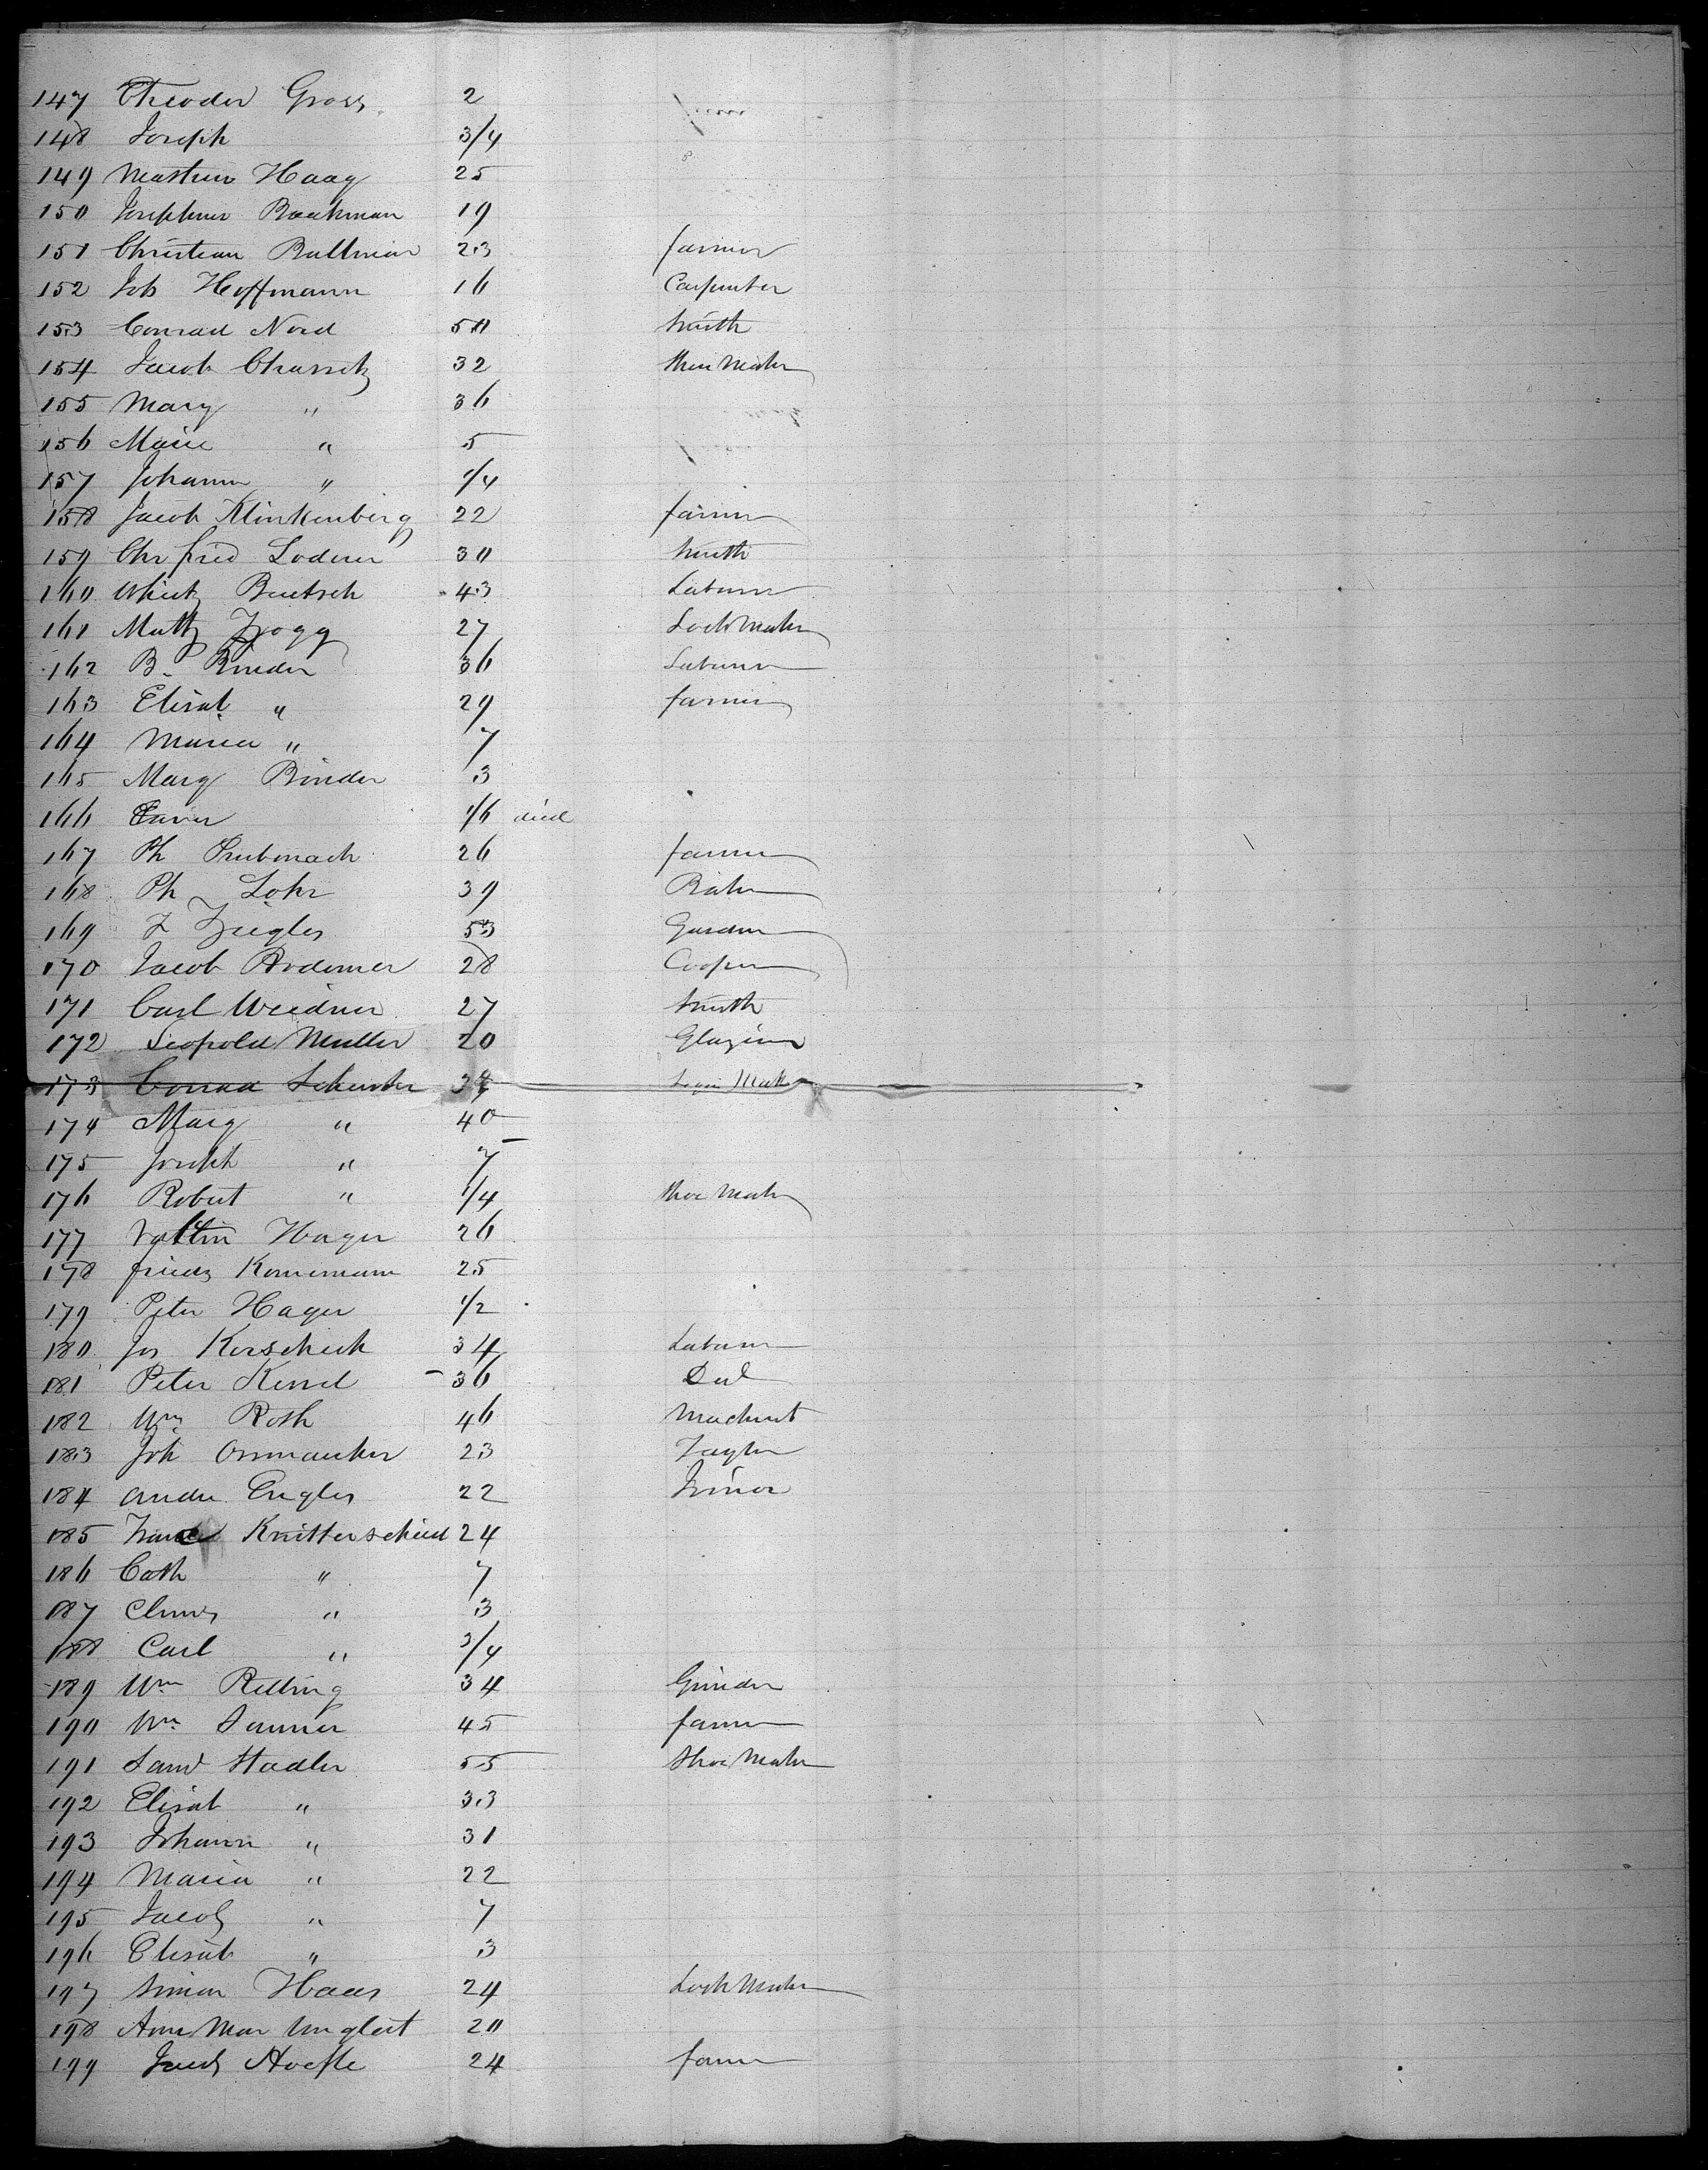 147 Theodor Gross 2
148 Joseph 3/4
149 Haag 25
150 19
151 Christian 23 farmer
152 Joh Hoffmann 16 Carpenter
153 Conrad Nord 50 Smith
154 Jacob 32 Shoe Maker
155 Mary " 36
156 Marie " 5
157 Johann " 1/4
158 Jacob Klinkenberg 22 farmer
159 Chr fried Loderer 30 Smith
160 43 Labourer
161 Math Zogg 27 Lock Maker
162 B. Binder 36 Labourer
163 Elisab " 29 farmer
164 Maria " 7
165 Marg Binder 3
166 1/6 died
167 Ph 26 farmer
168 Ph Lohr 39 Baker
169 Ziegler 53 Gardner
170 Jacob 28 Cooper
171 Carl Weidner 27 Smith
172 Leopold Muller 20 Glazier
173 Conrad Schuster Maker
174 Marg " 40
175 Joseph " 7
176 Robert " 1/4 Shoe Maker
177 Hager 26
178 Friedr 25
179 Peter Hager 1/2
180 Jos 34 Labourer
181 Peter 36
182 Wm Roth 46
183 Joh 23 Taylor
184 Andre Engler 22
185 Knitterscheid 24
186 Cath " 7
187 " 3
188 Carl " 3/4
189 Wm 34 Grinder
190 Wm 45 farmer
191 Stadler 55 Shoe Maker
192 Elisab " 33
193 Johann " 31
194 Maria " 22
195 Jacob " 7
196 Elisab " 3
197 Simon Haas 24 Lock Maker
198 Anna Mar Unglert 20
199 24 farmer